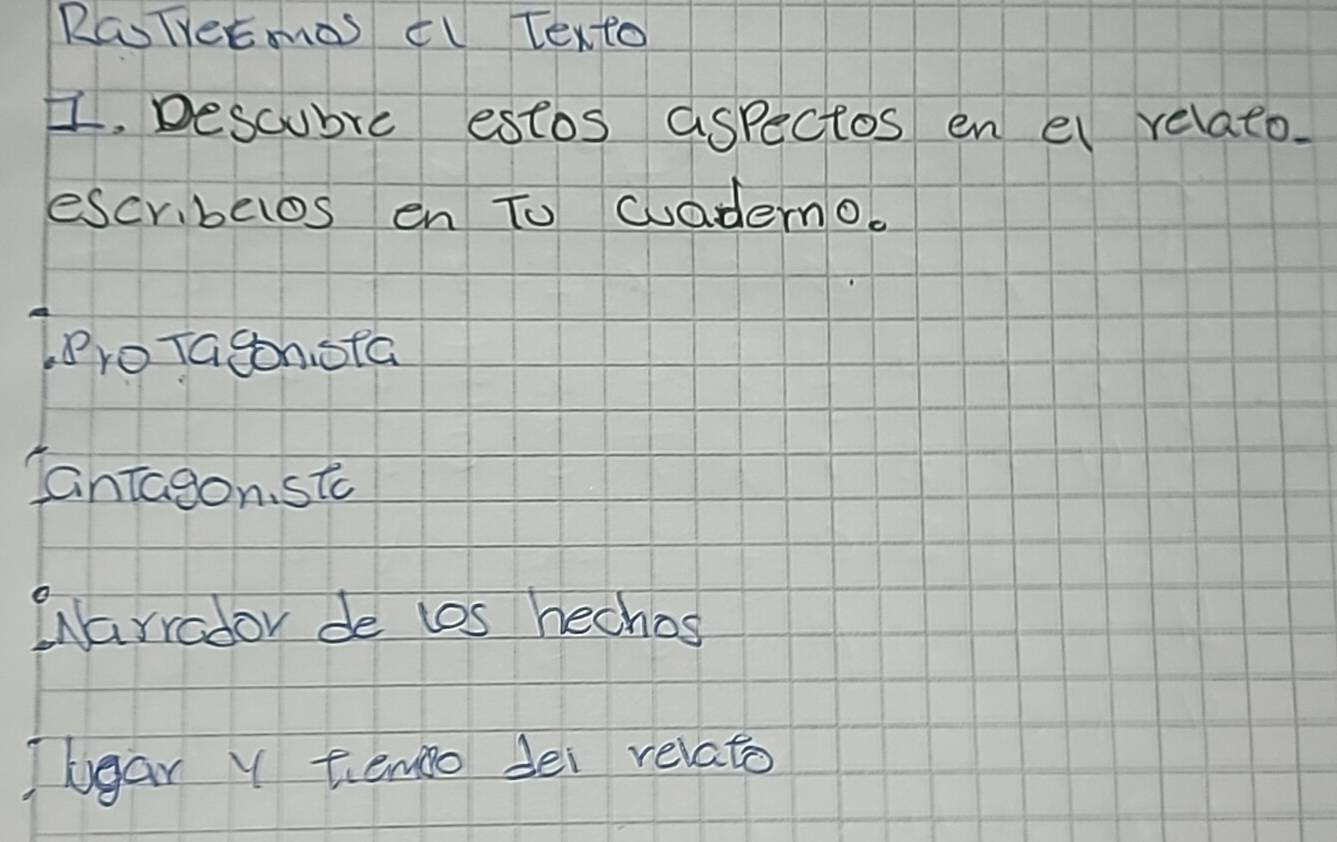 RasTreEmos el Texto
I. Descubre estos aspectos en el relato.
escribelos en Tu cuaderno.
.ProTagonista
antagonista
Narrador de los hechos
lugar y tiempo del relato